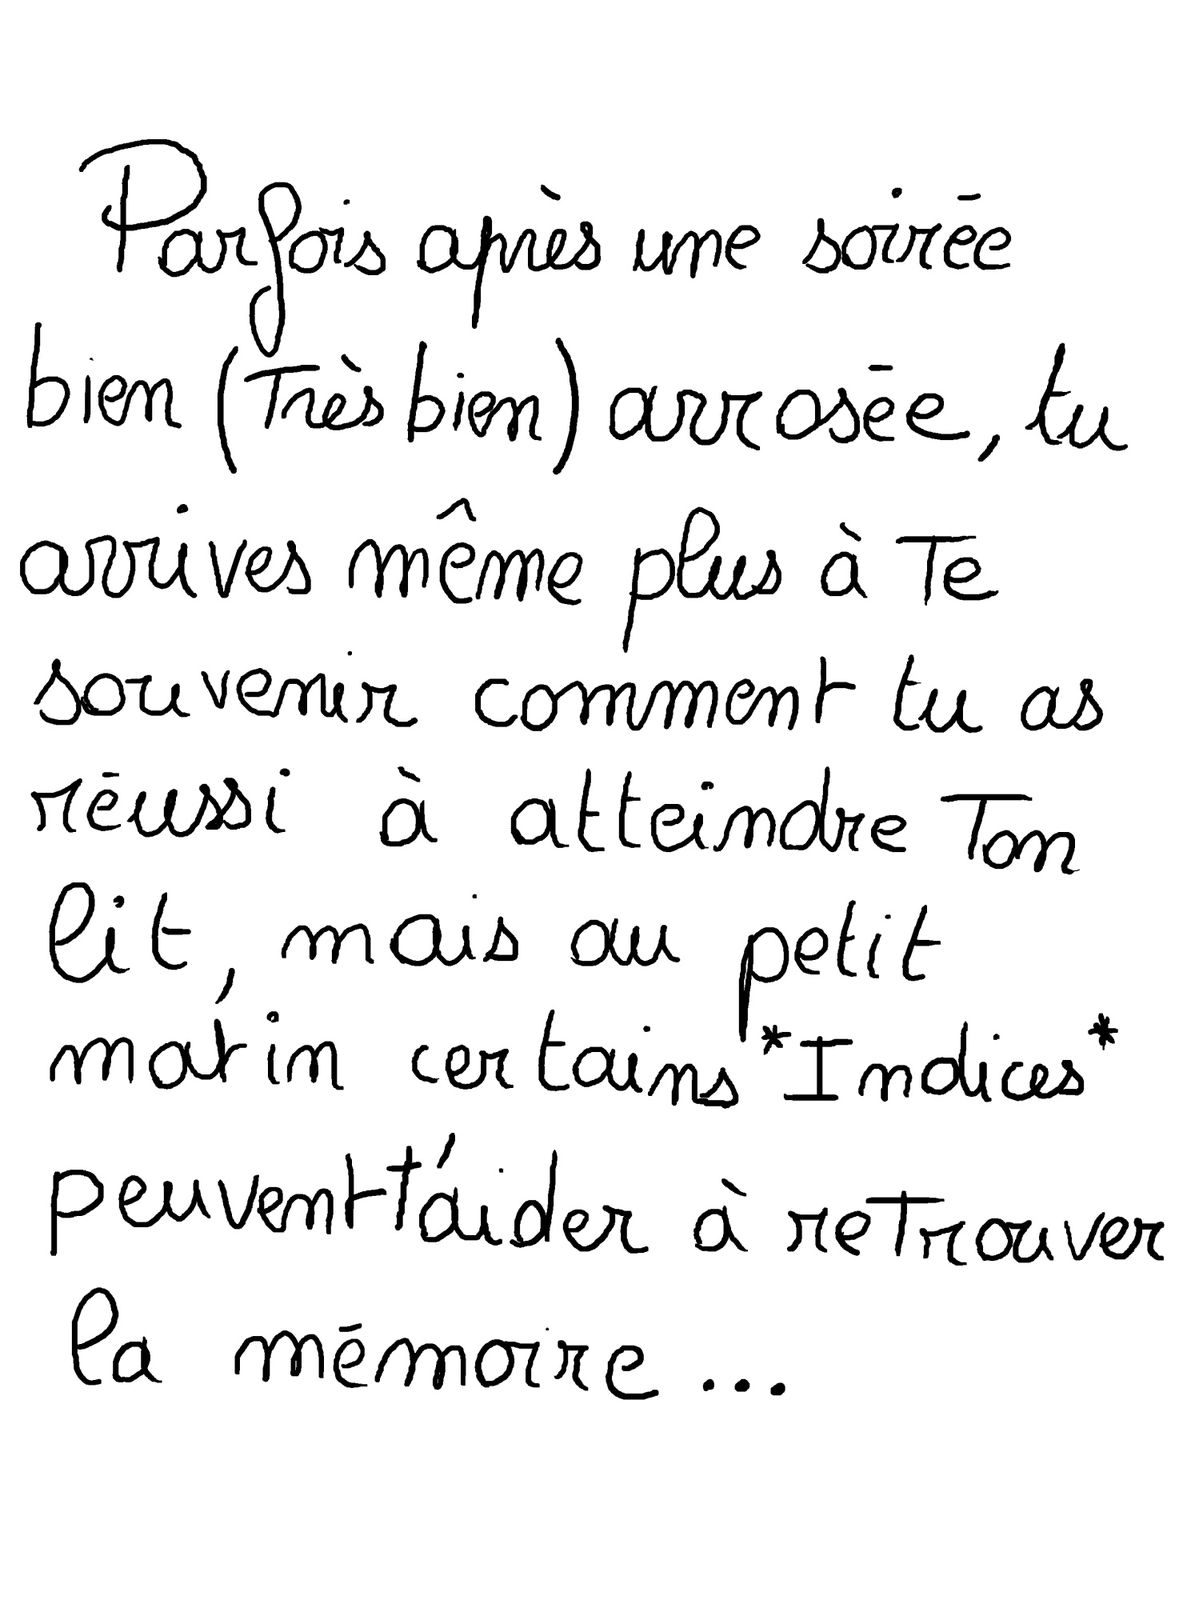 Parfois après une soirée
bien (Très bien) arrosée, tu
arrives même plus à Te
souvenir comment tu as
réussi à atteindre Ton
lit, mais au petit
matin certains *Indices*
peuvent t'aider à reTrouver
la mémoire...